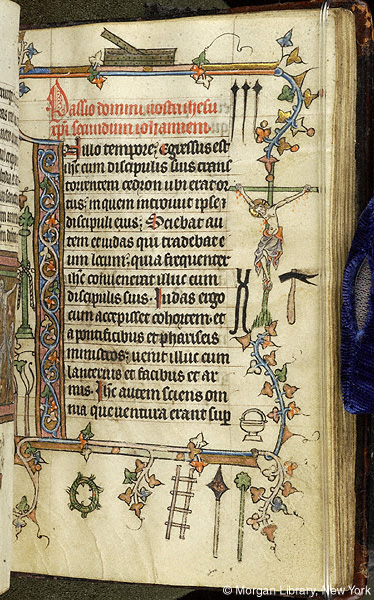 Passio domini nostri ihesu
xpi secundum iohannem
In illo tempore; Egressus est
ihc cum discipulis suis trans
torrentem cedron ubi erat or
tus; in quem introiuit ipse &
discipuli eius; Sciebat au
tem et iudas qui tradebat e
um locum; quia frequenter
ihc conuenerat illuc cum
discipulis suis. Iudas ergo
cum accepisset cohortem et
a pontificibus et phariseis
ministros; uenit illuc cum
lanternis et facibus et ar
mis. Ihc autem sciens om
nia que uentura erant sup
© Morgan Library, New York